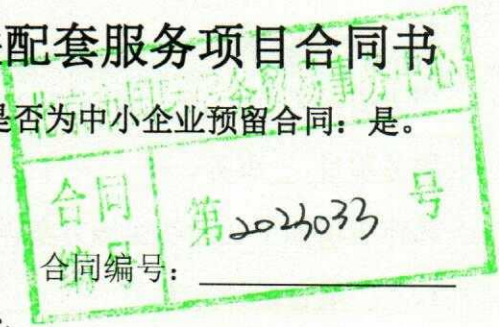 配套服务项目合同书
是否为中小企业预留合同：是。
合同
第2023033号
编号
合同编号：